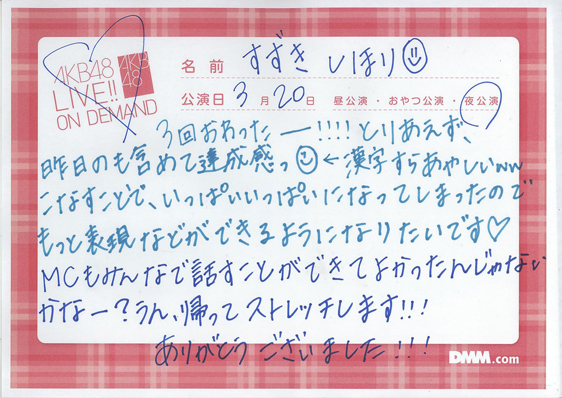 AKB48
LIVE!!
ON DEMAND
AKB
48
名前 すずき しほり
公演日 3月20日 昼公演・おやつ公演・夜公演
3回おわったー!!!!とりあえず、
昨日のも含めて達成感っ ← 漢字すらあやしいww
こなすことで、いっぱいいっぱいになってしまったので
もっと表現などができるようになりたいです♡
MCもみんなで話すことができてよかったんじゃない
かなー?うん、帰ってストレッチします!!!
ありがとう ございました!!!
DMM.com